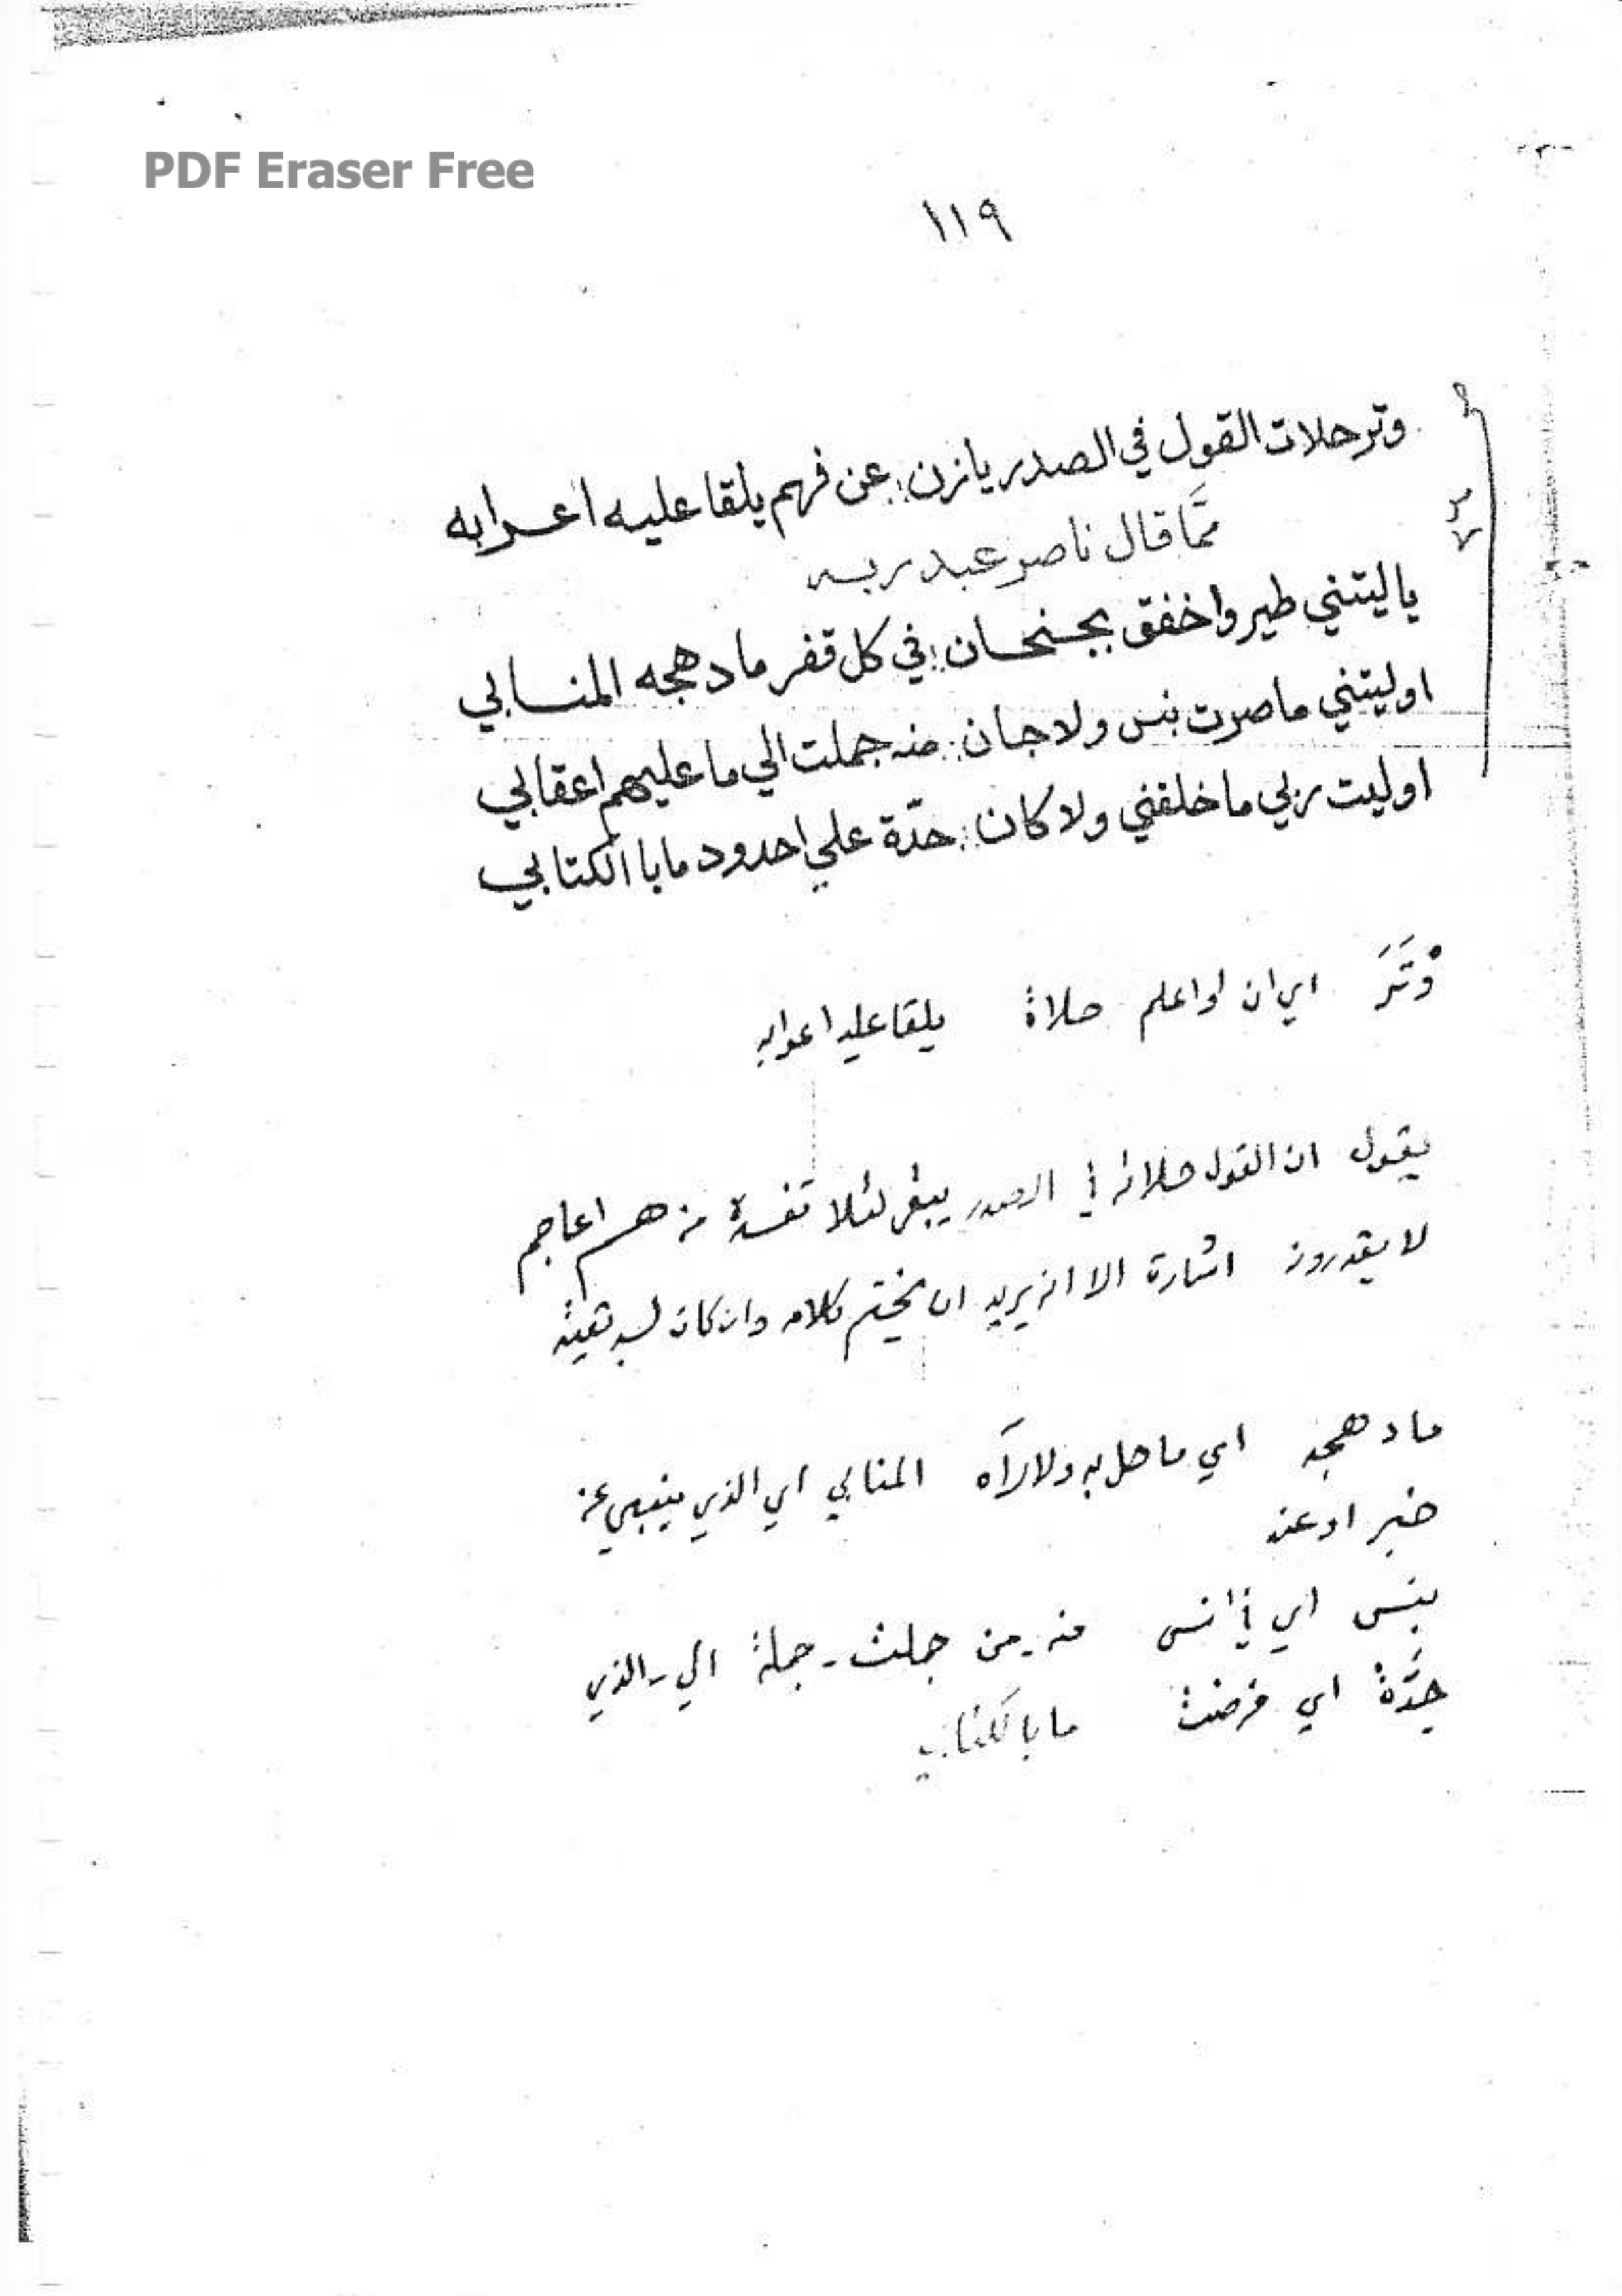 PDF Eraser Free
١١٩
وترحلات القول في الصدر يانزن؛ عن فهم يلقا عليه اعرابه
ممّا قال ناصر عبد ربه
ياليتني طير واخفق بجنحان؛ في كل قفر مادهجه المنابي
اوليتني ماصرت بنس ولاجان؛ منه جملت الي ماعليهم اعقابي
اوليت ربي ماخلقني ولاكان؛ حدّة علي احدود مابا الكتابي
وْتَرَ اي ان لو اعلم حلاة يلقا عليه اعرابه
يقول ان القول حلاته في الصدر يبقى لئلا تفسده من هم اعاجم
لا يقدرون اشارة الا انه يريد ان يختم كلامه وان كان
مادهجه اي ما حل به ولا رآه المنابي اي الذي ينبي عن
خبر او عنه
بنس اي في انس منه - من جملت - جملة الي - الذي
حِدَّة اي فرضت مابا لكتابي